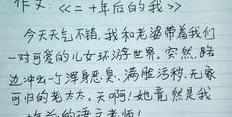 作文：《二十年后的我》
今天天气不错，我和老婆带着我们
一对可爱的儿女环游世界。突然，路
边冲出一个浑身恶臭、满脸污秽、无家
可归的老太太。天啊！她竟然是我
的语文老师！